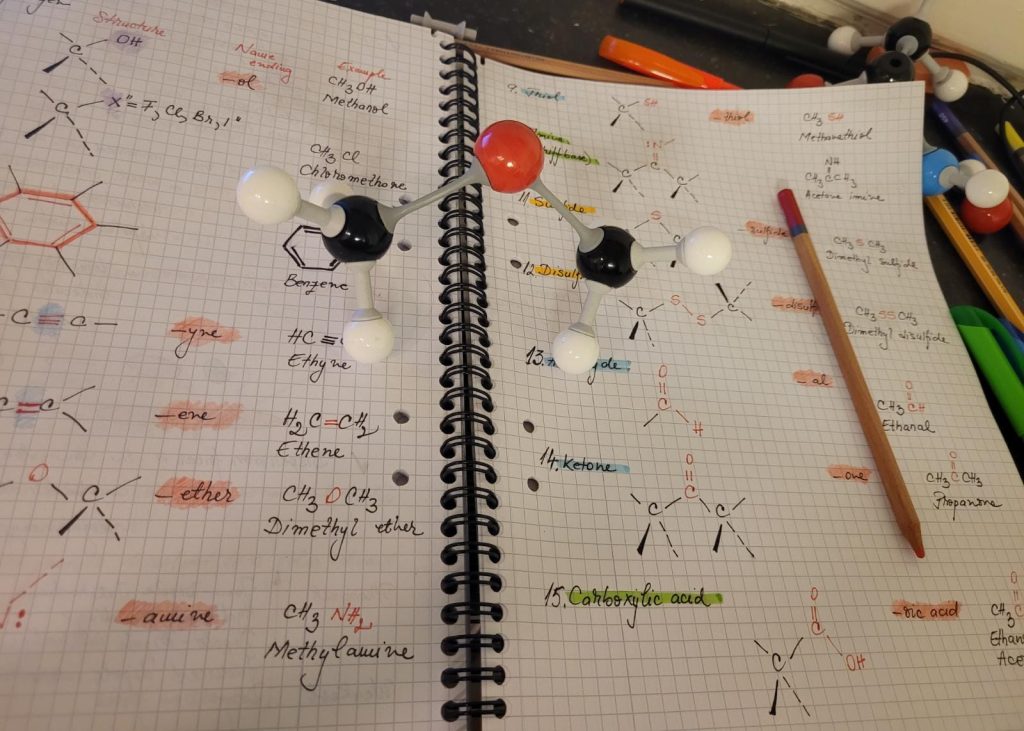 Structure
OH
Name
ending
Example
-ol
CH3OH
Methanol
C
X = F, Cl, Br, I
CH3Cl
Chloromethane
Benzene
C≡C-
-yne
HC≡
Ethyne
C=C
-ene
H2C=CH2
Ethene
O
C
-ether
CH3OCH3
Dimethyl ether
-amine
CH3NH2
Methylamine
9. Thiol
C
SH
-thiol
CH3SH
Methanethiol
N
C
C
C
NH
CH3CCH3
Acetone imine
11
Sulfide
S
sulfide
CH3SCH3
Dimethyl sulfide
12.
C
S
S
C
CH3SSCH3
Dimethyl disulfide
13.
O
C
H
-al
O
CH3CH
Ethanal
14. Ketone
O
C
C
C
-one
O
CH3CCH3
Propanone
15. Carboxylic acid
O
C
C
OH
-oic acid
O
CH3C